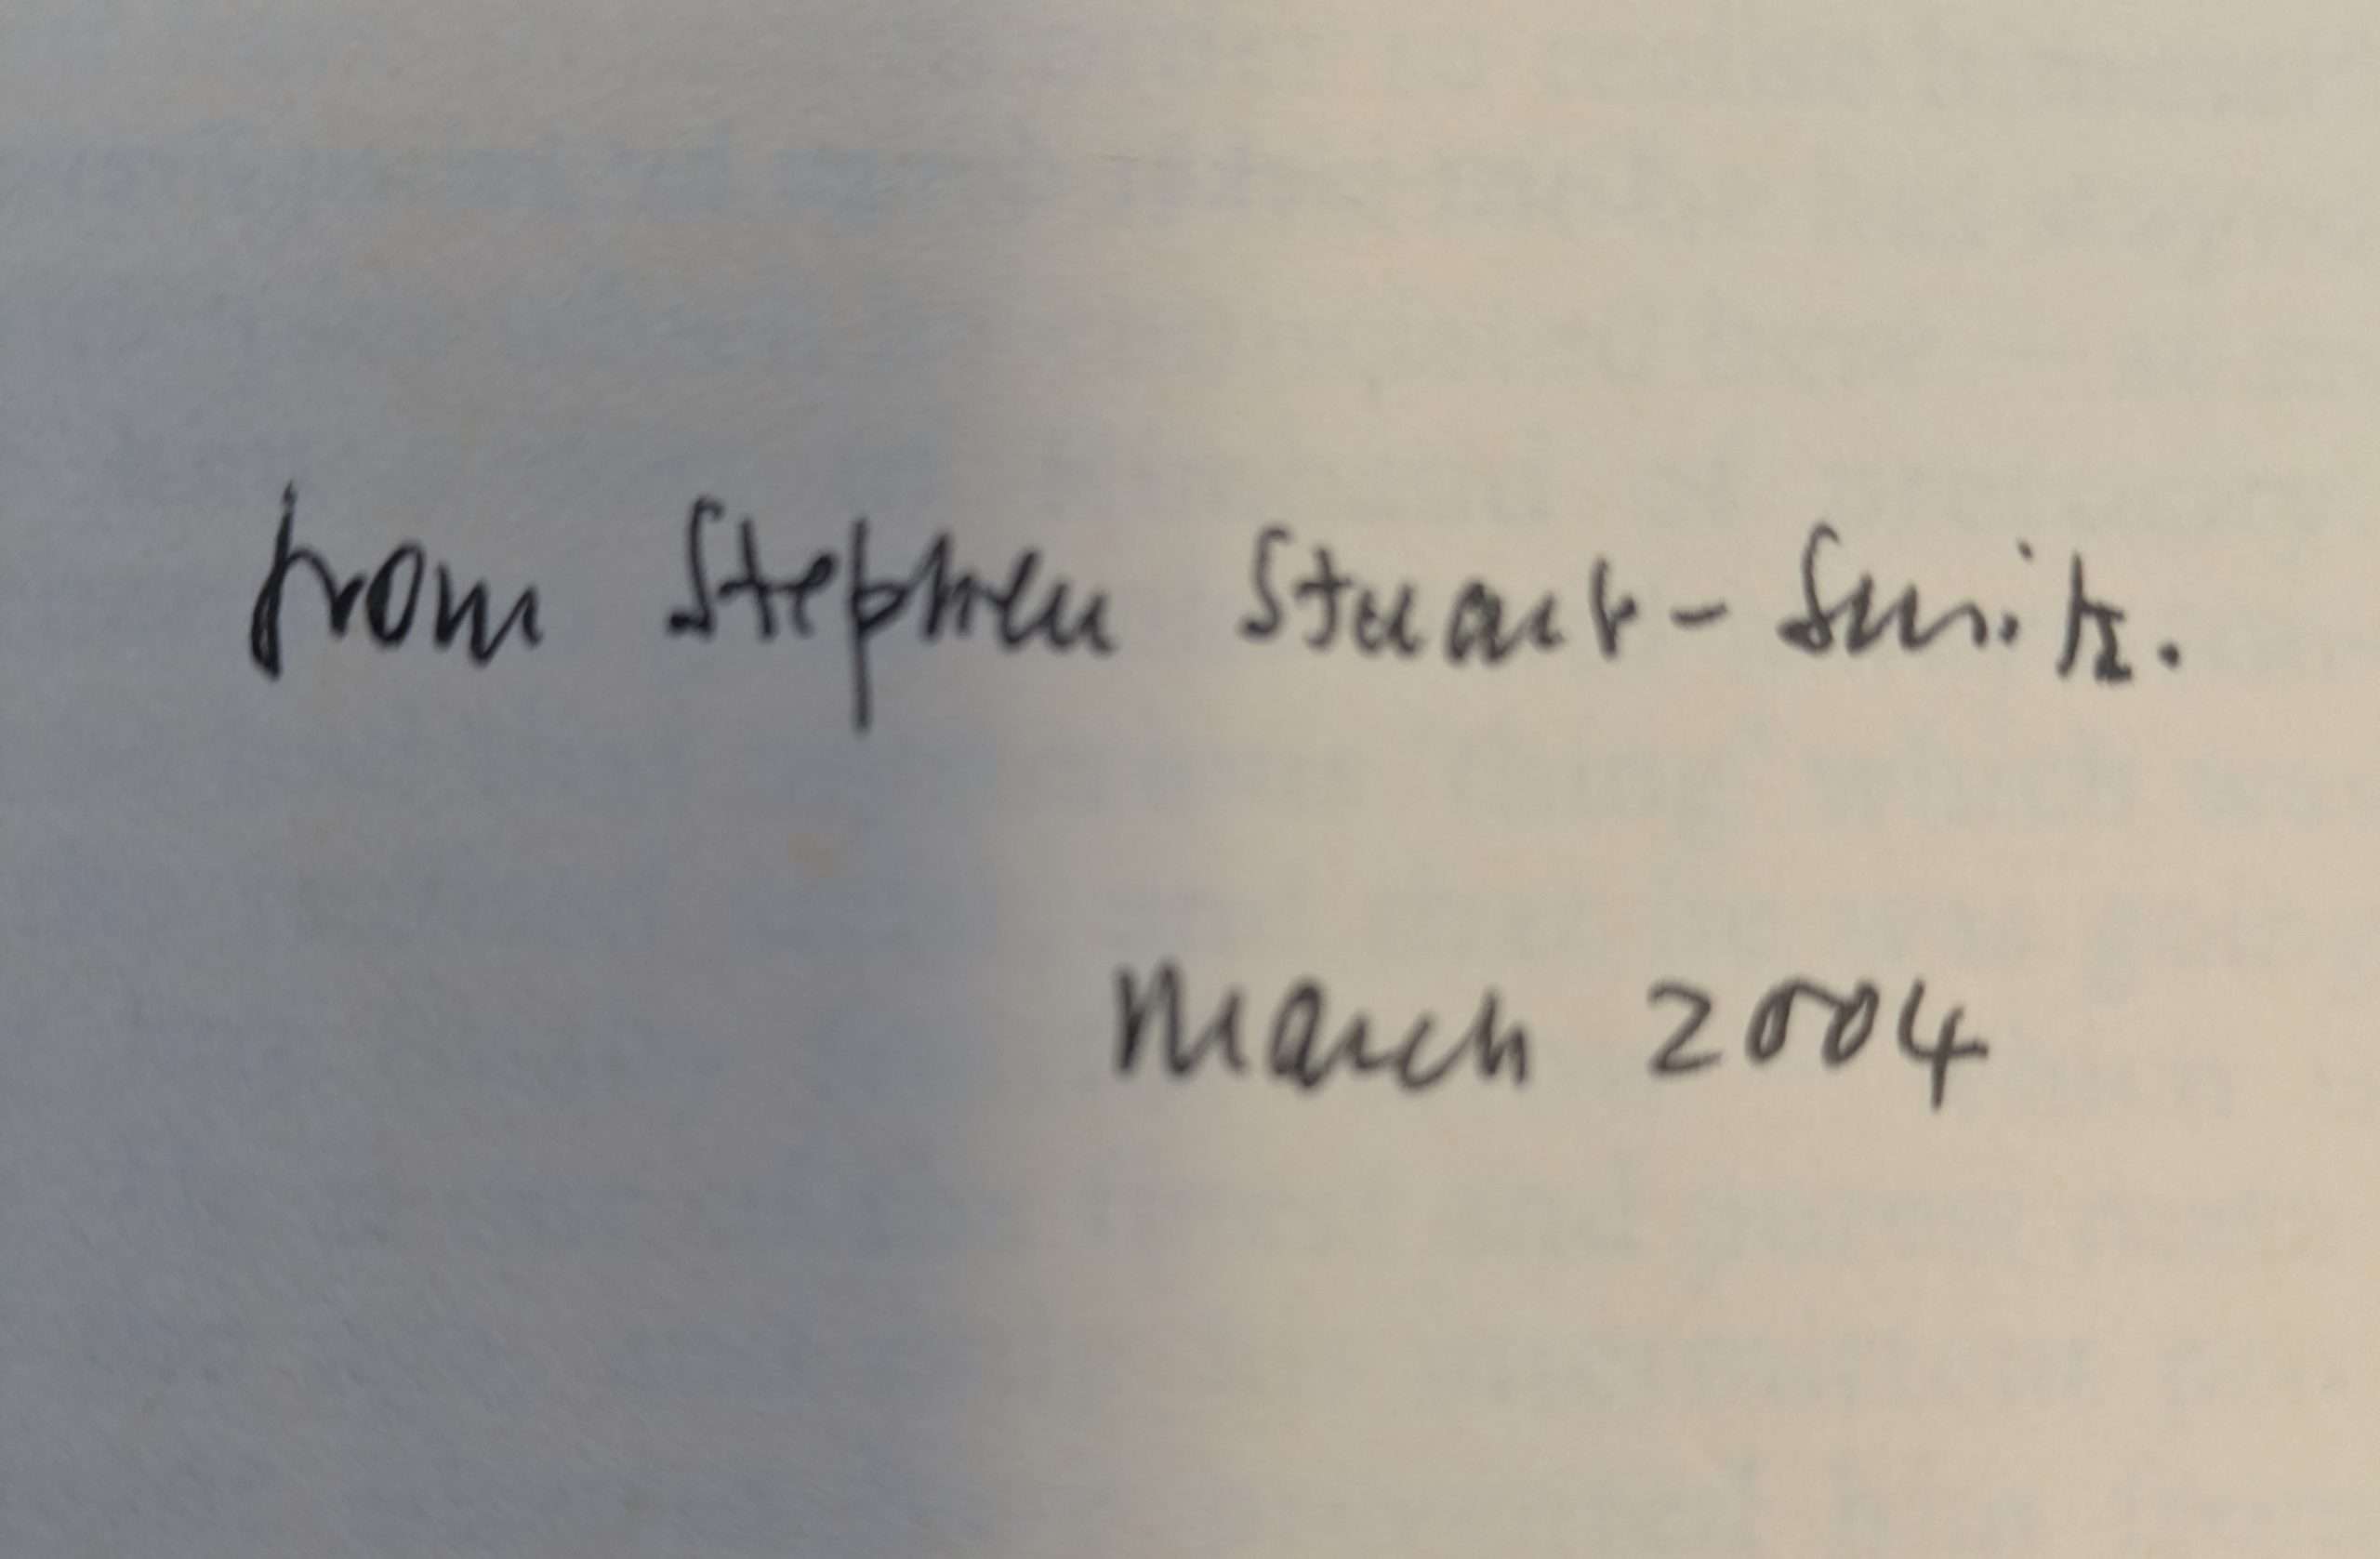 from Stephen Stuart-Smith.
March 2004